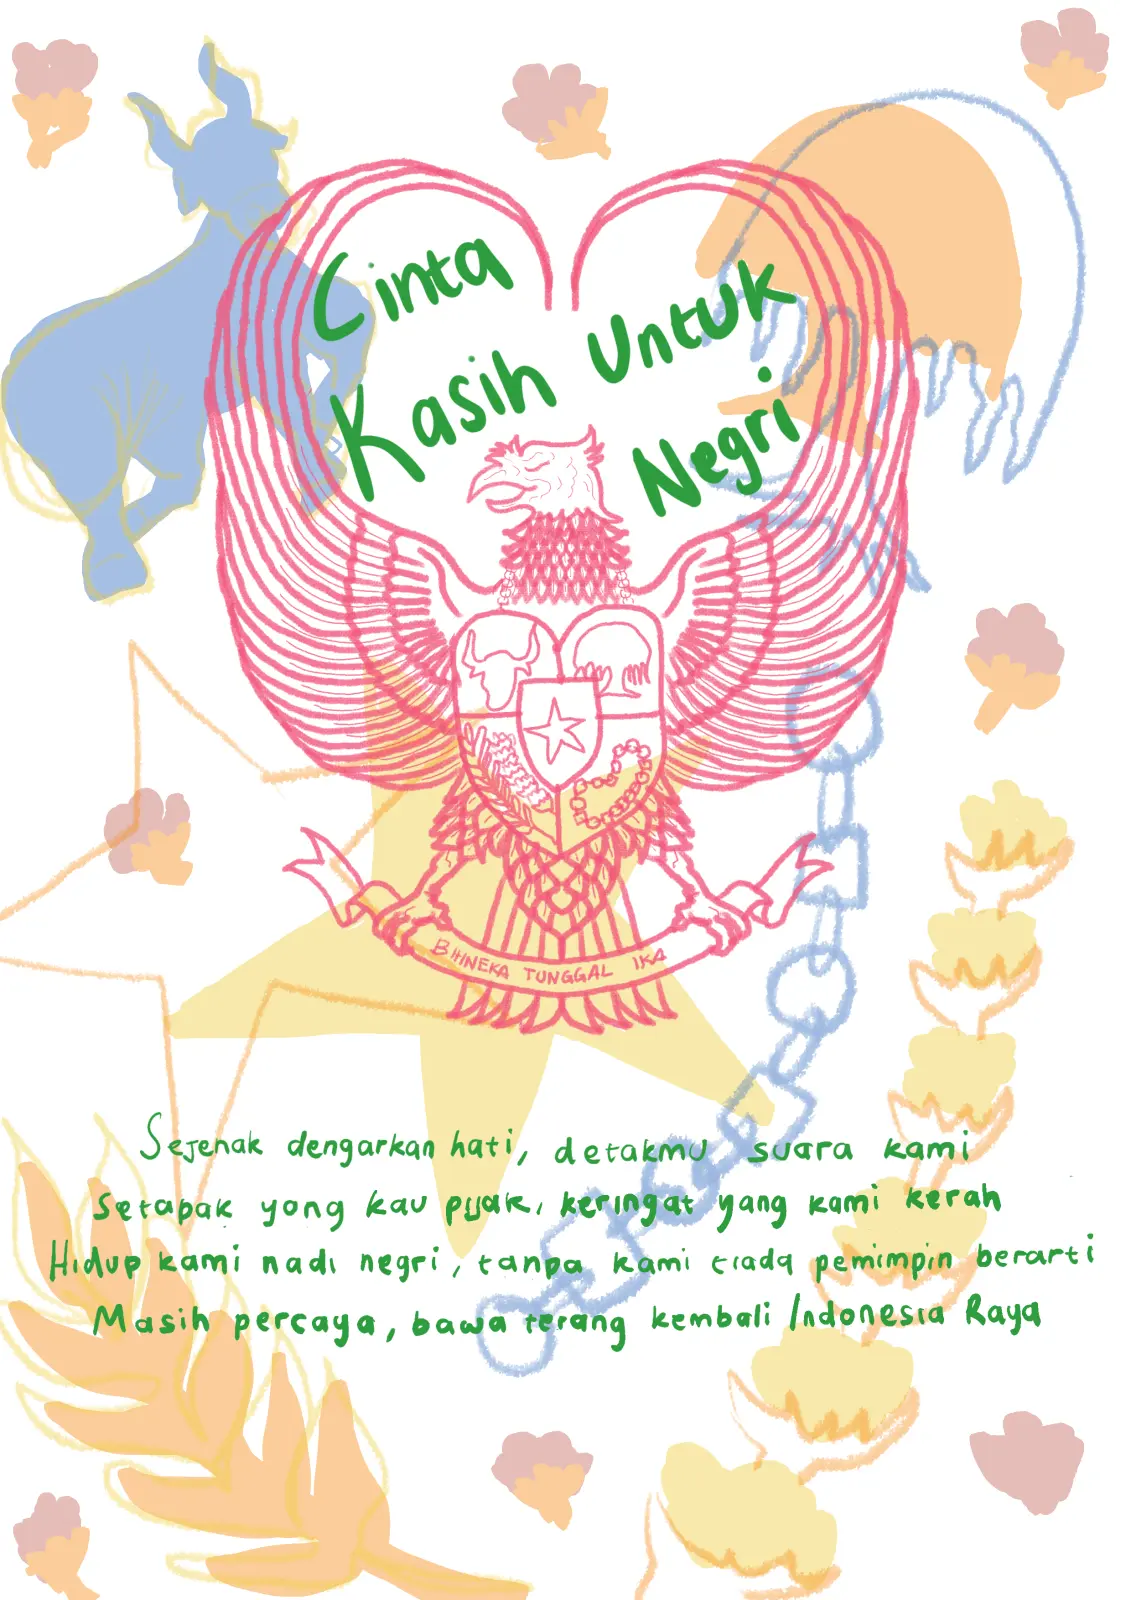 Cinta
Kasih Untuk
Negri
BIHNEKA TUNGGAL IKA
Sejenak dengarkan hati, detakmu suara kami
Setapak yang kau pijak, keringat yang kami kerah
Hidup kami nadi negri, tanpa kami tiada pemimpin berarti
Masih percaya, bawa terang kembali Indonesia Raya